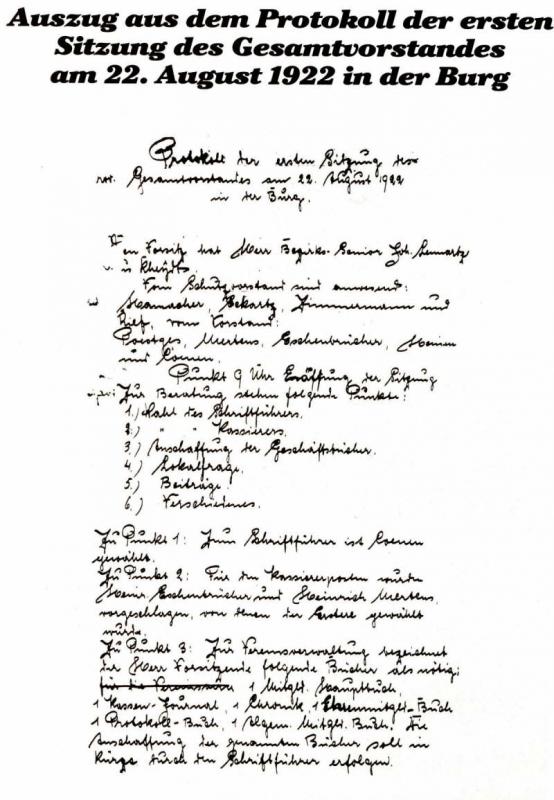 Auszug aus dem Protokoll der ersten
Sitzung des Gesamtvorstandes
am 22. August 1922 in der Burg
Protokoll der ersten Sitzung des
Gesamtvorstandes am 22. August 1922
in der Burg.
Den Vorsitz hat Herr Bezirks-Senior Joh. Lennartz
Rheydt.
Vom Schutzvorstand sind anwesend:
Hamacher, Eckartz, Zimmermann und
vom Vorstand:
Poestges, Mertens, Eschenbrücher, Heinen
und Coenen.
Punkt 9 Uhr Eröffung der Sitzung
Zur Beratung stehen folgende Punkte:
1.) Wahl des Schriftführers.
2.) " " Kassierers.
3.) Anschaffung der Geschäftsbücher.
4.) Lokalfrage.
5.) Beiträge.
6.) Verschiedenes.
Zu Punkt 1: Zum Schriftführer ist Coenen
gewählt.
Zu Punkt 2: Für den Kassiererposten wurden
Heinr. Eschenbrücher und Heinrich Mertens
vorgeschlagen, von denen der Erstere gewählt
wurde.
Zu Punkt 3: Zur Vereinsverwaltung bezeichnet
der Herr Vorsitzende folgende Bücher als nötig:
für die 1 Mitgl. Hauptbuch,
1 Kassen-Journal, 1 Chronik, 1 Ehrenmitgl-Buch
1 Protokoll-Buch, 1 Algem. Mitgl. Buch. Die
Anschaffung der genannten Bücher soll in
Kürze durch den Schriftführer erfolgen.